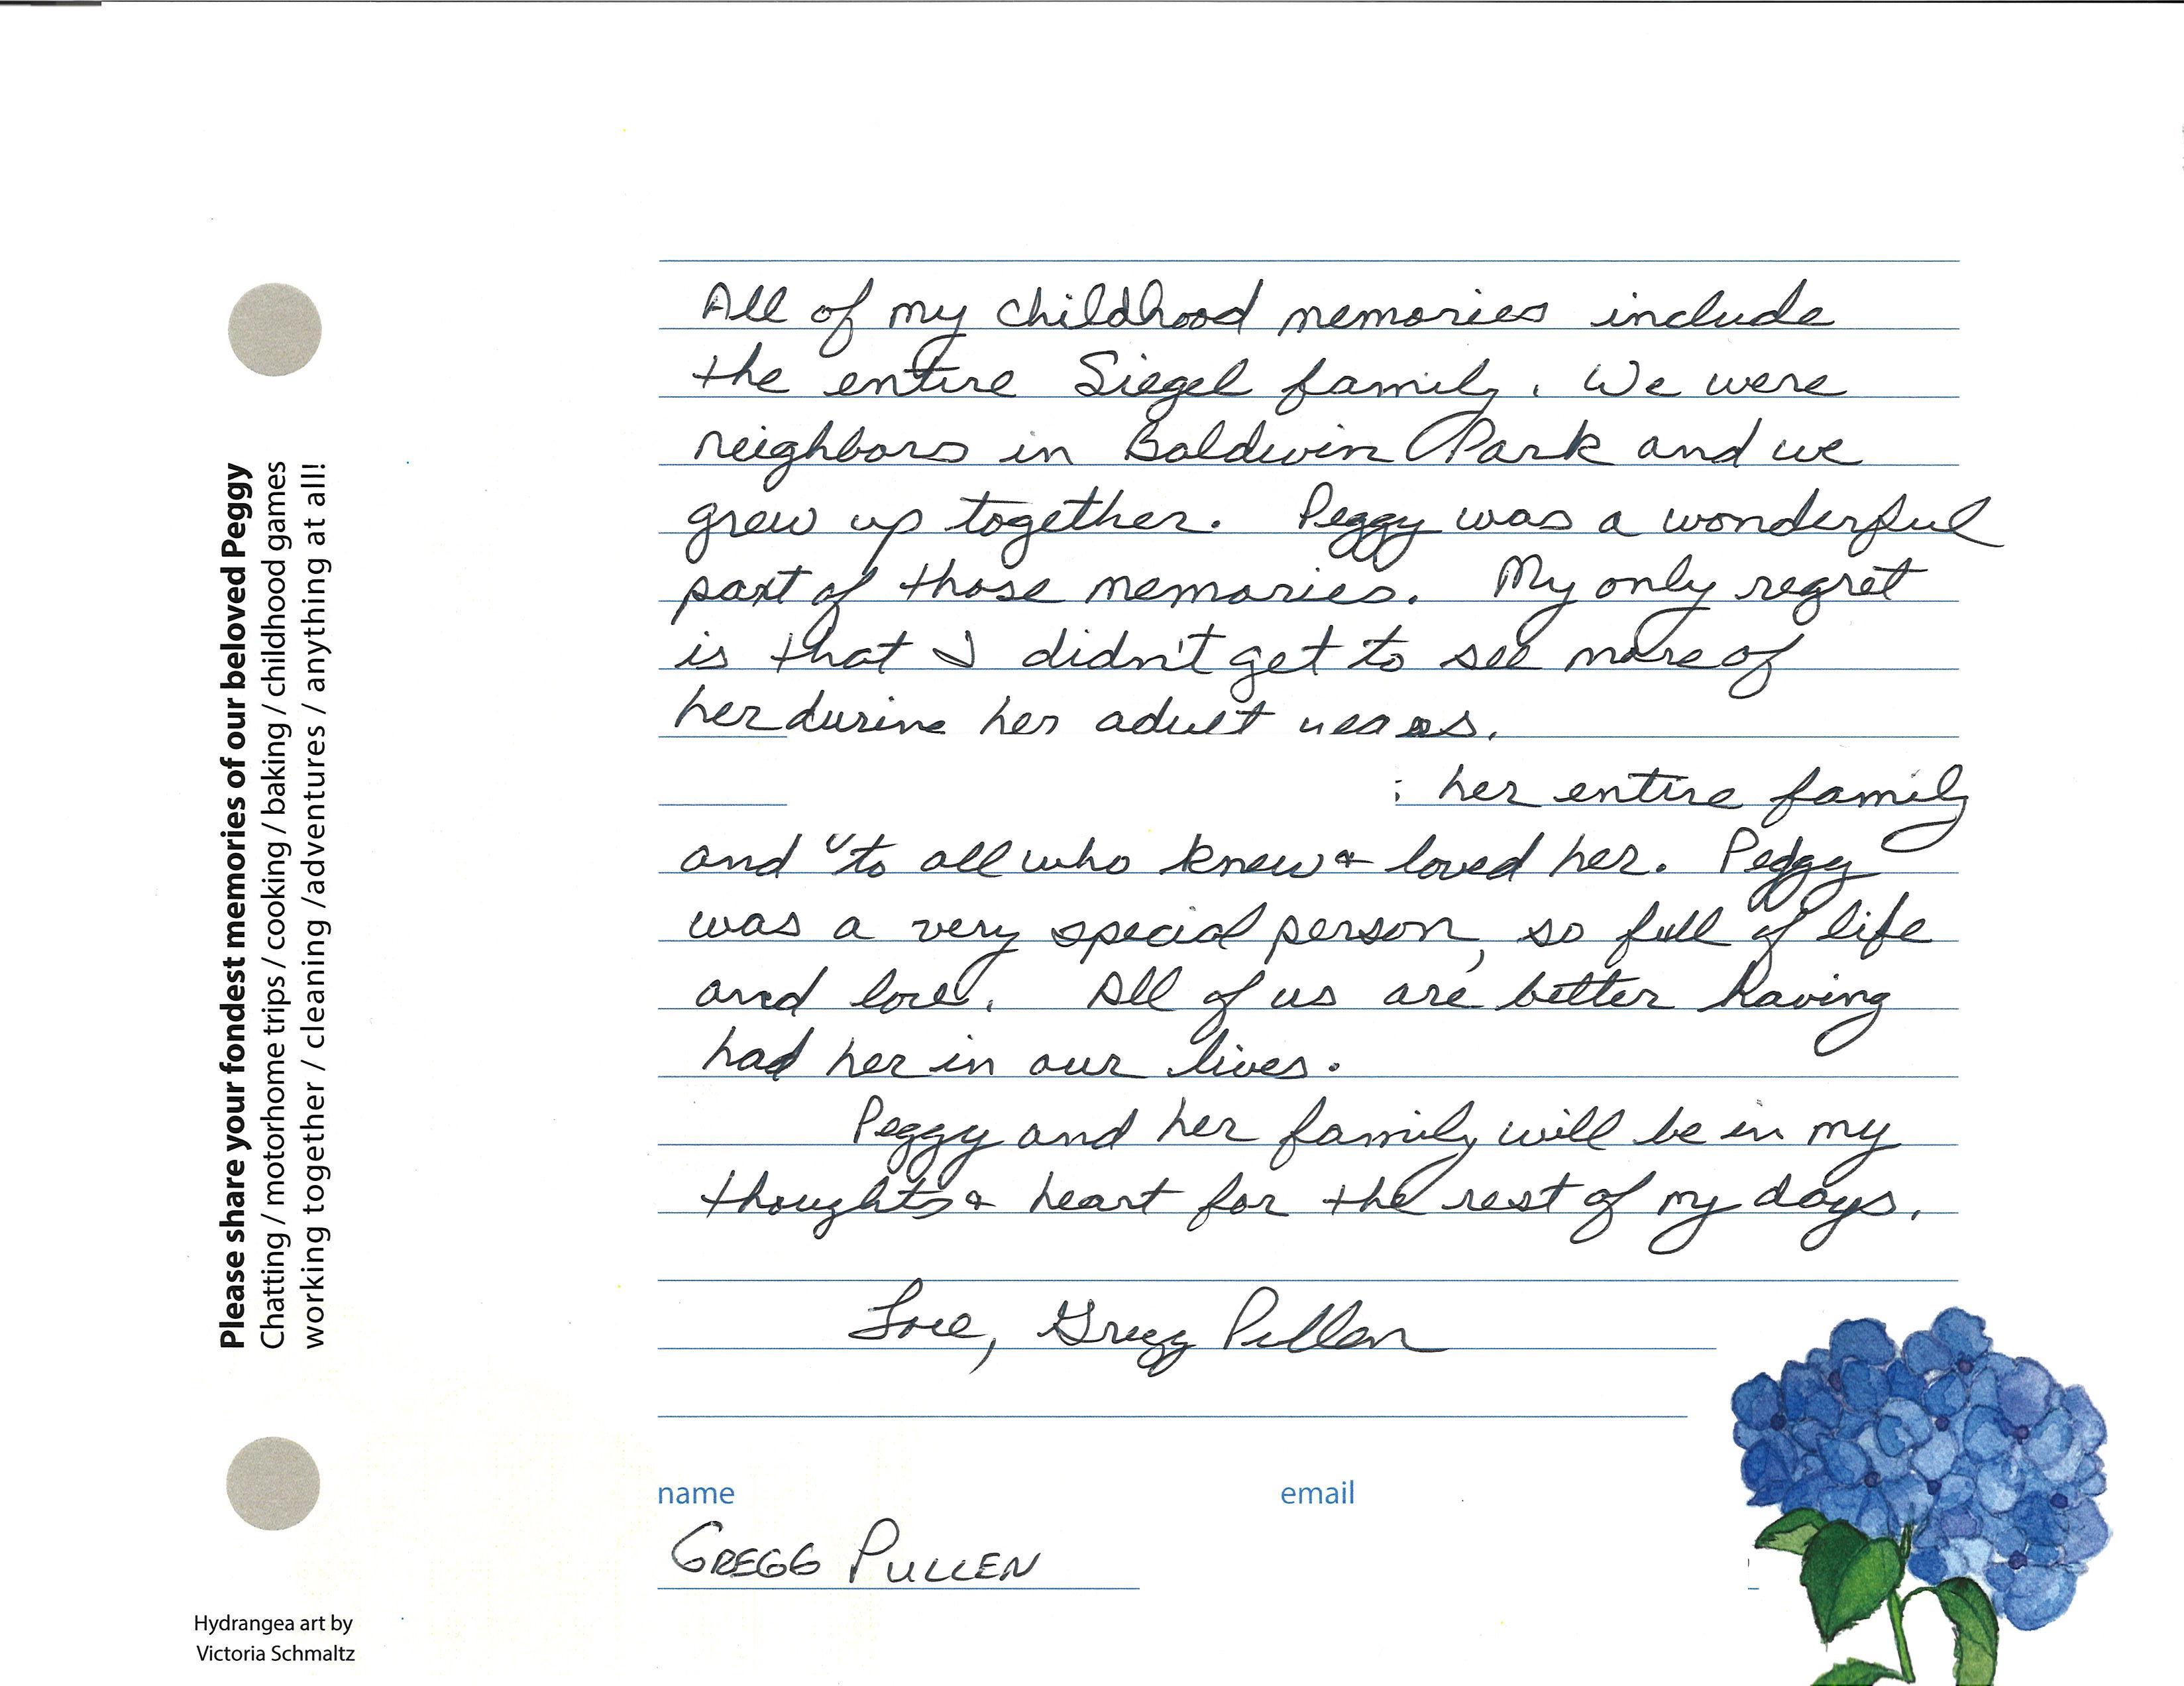 Please share your fondest memories of our beloved Peggy
Chatting / motorhome trips / cooking / baking / childhood games
working together / cleaning /adventures / anything at all!
All of my childhood memories include
the entire Siegel family. We were
neighbors in Baldwin Park and we
grew up together. Peggy was a wonderful
part of those memories. My only regret
is that I didn't get to see more of
her during her adult years.
her entire family
and to all who knew & loved her. Peggy
was a very special person, so full of life
and love. All of us are better having
had her in our lives.
Peggy and her family will be in my
thoughts & heart for the rest of my days.
Love, Gregg Pullen
name
email
GREGG PULLEN
Hydrangea art by
Victoria Schmaltz